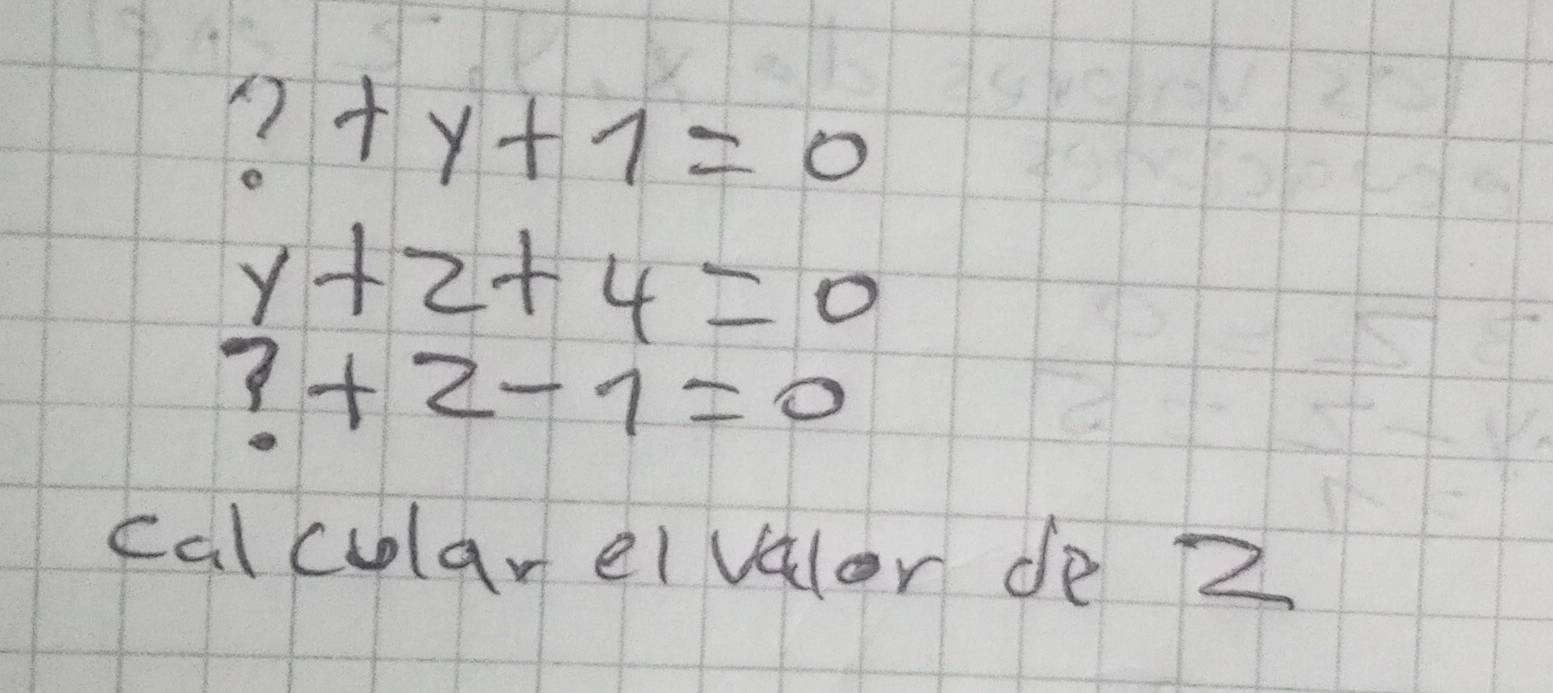 ? + y + 1 = 0
y + z + 4 = 0
? + z - 1 = 0
calcular el valor de z